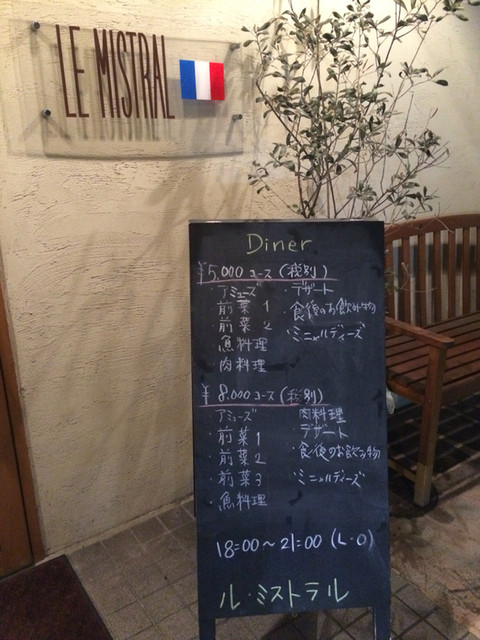 LE MISTRAL
Diner
¥5,000 コース (税別)
・アミューズ
・前菜 1
・前菜 2
・魚料理
・肉料理
・デザート
・食後のお飲み物
・ミニャルディーズ
¥8,000 コース (税別)
・アミューズ
・前菜 1
・前菜 2
・前菜 3
・魚料理
肉料理
・デザート
・食後のお飲み物
・ミニャルディーズ
18:00～21:00 (L・O)
ル・ミストラル